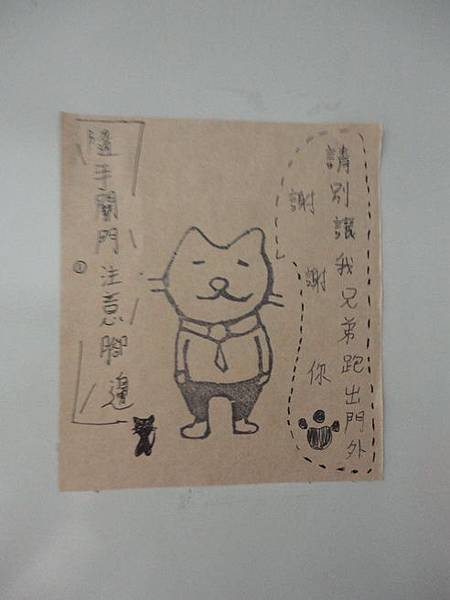 請別讓我兄弟跑出門外
謝謝你
隨手關門注意腳邊